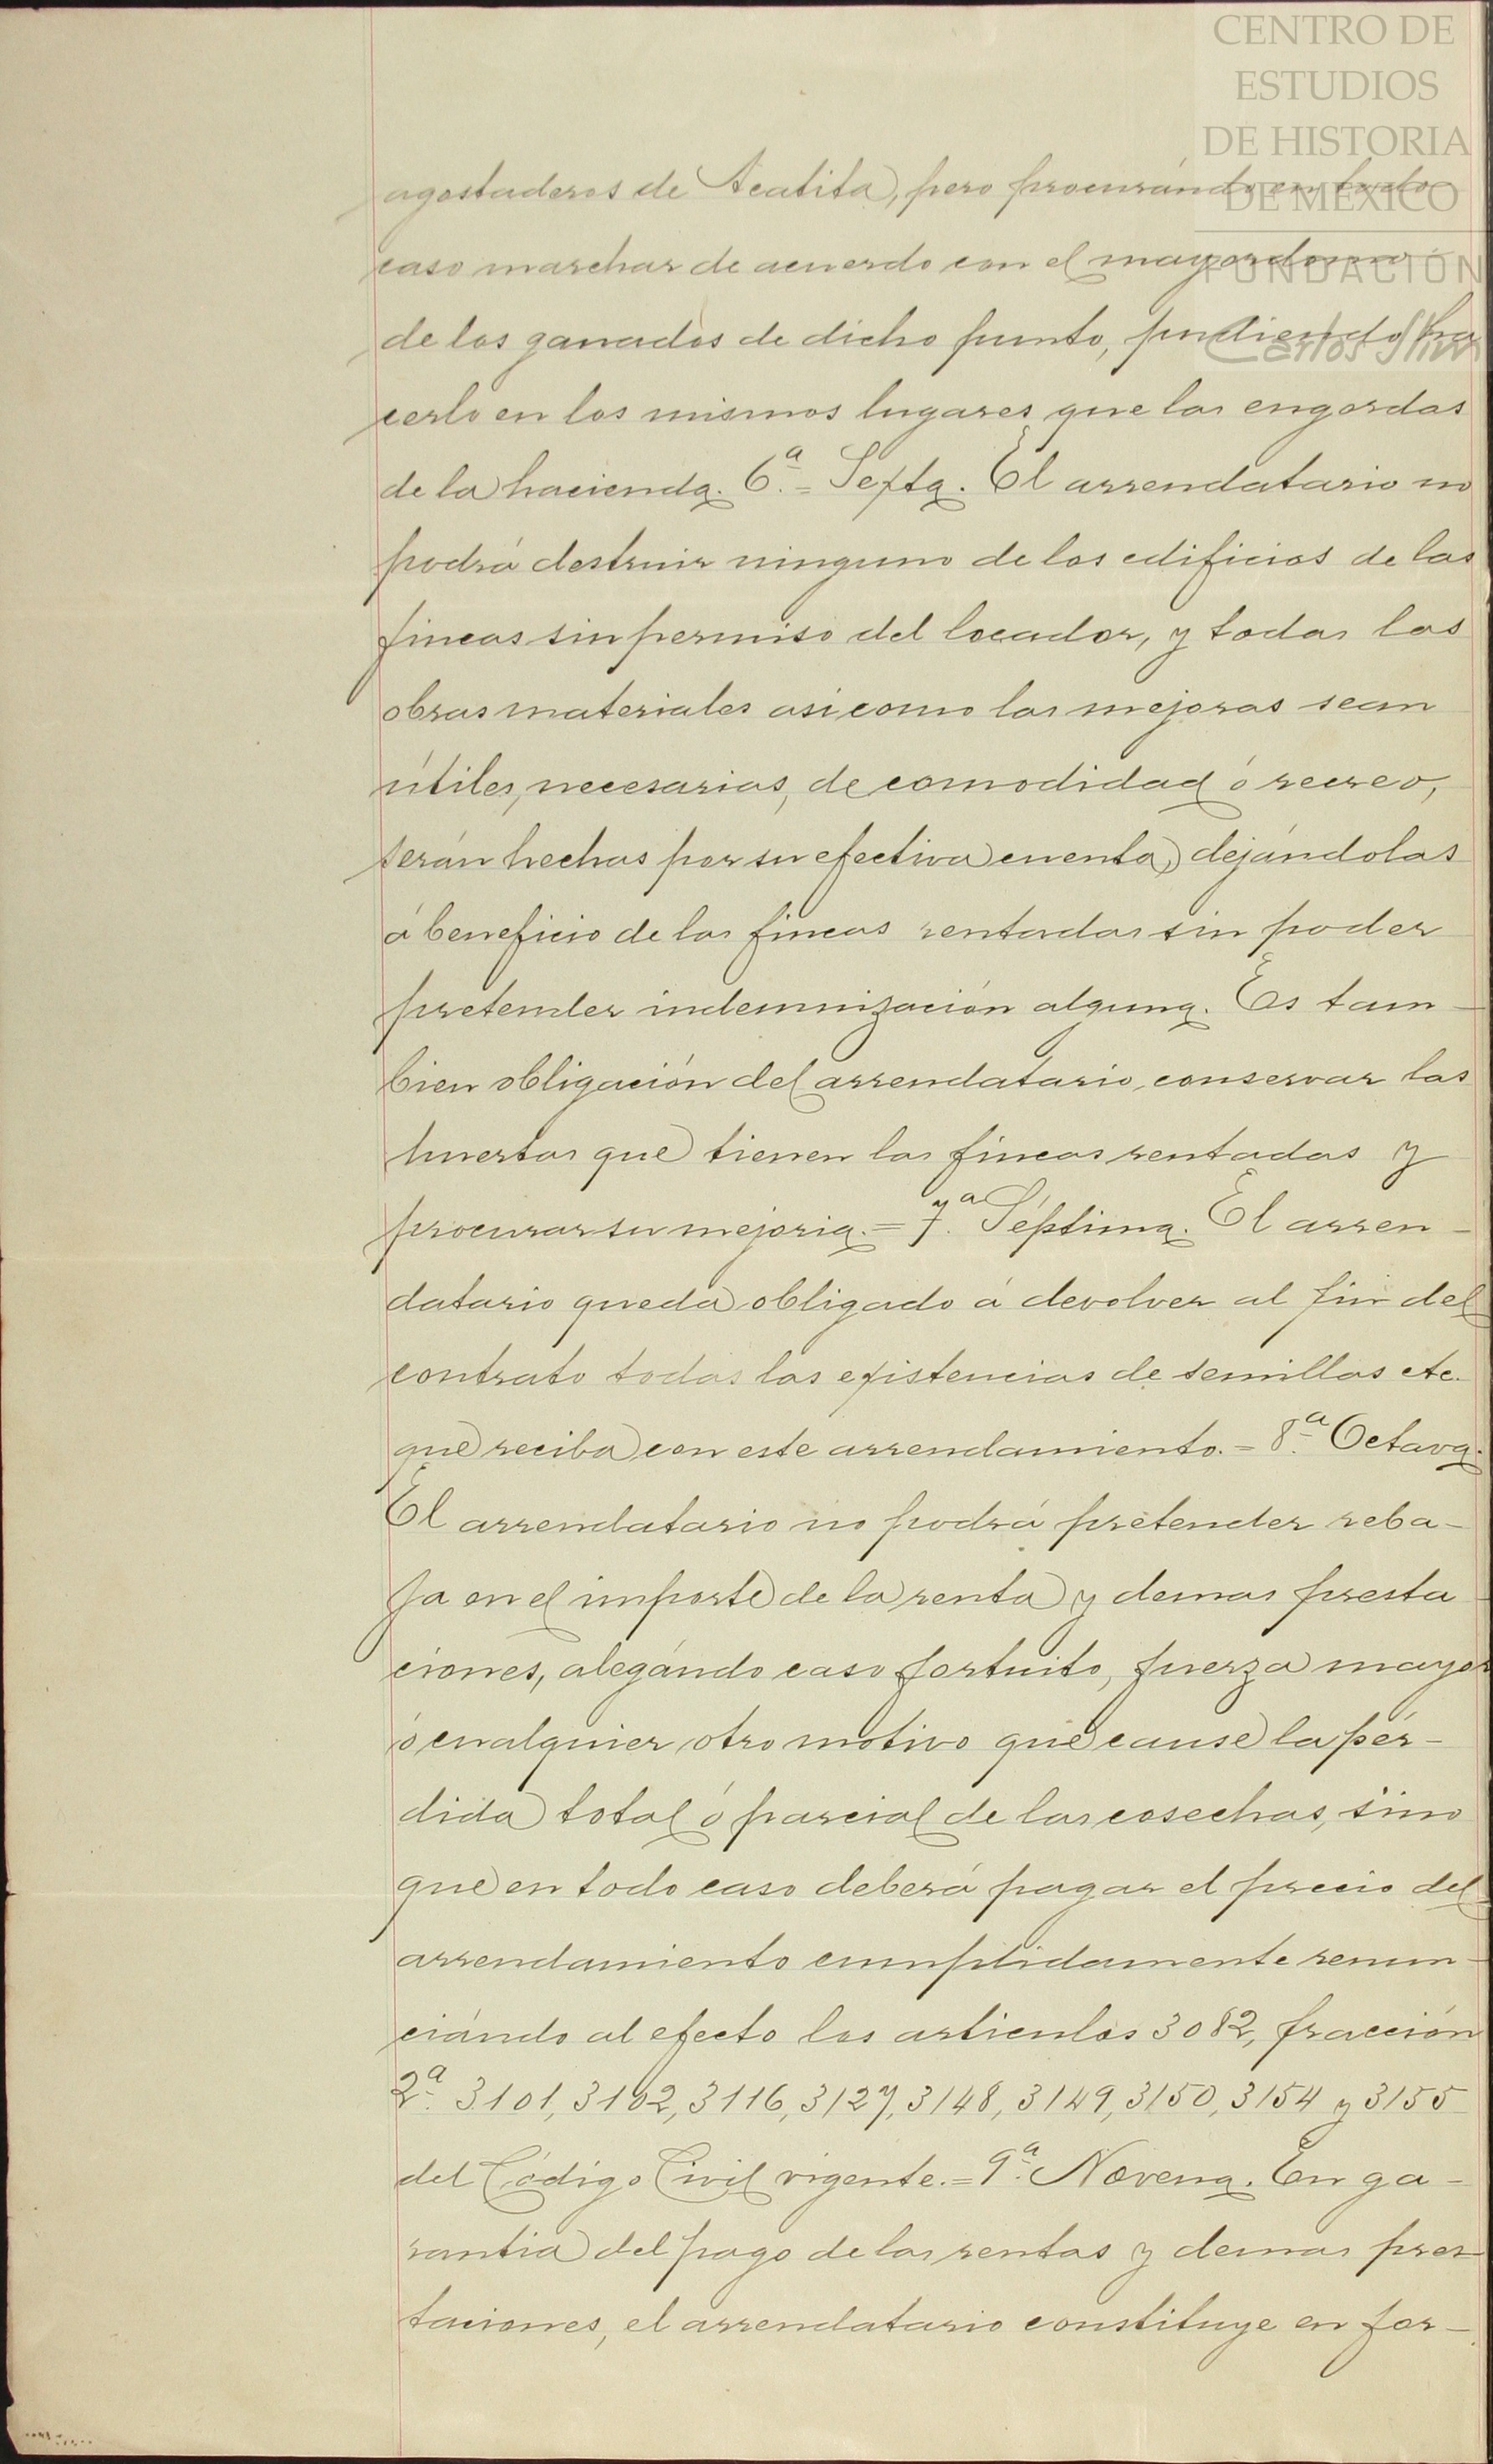 CENTRO DE
ESTUDIOS
DE HISTORIA
DE MÉXICO
FUNDACIÓN
Carlos Slim
agostaderos de Acatita, pero procurándo en todo
caso marchar de acuerdo con el mayordomo
de los ganados de dicho punto, pudiendo ha
cerlo en los mismos lugares que las engordas
de la hacienda. 6ª.= Sexta. El arrendatario no
podrá destruir ninguno de los edificios de las
fincas sin permiso del locador, y todas las
obras materiales asi como las mejoras sean
útiles, necesarias, de comodidad ó recreo,
serán hechas por su efectiva cuenta, dejándolas
á beneficio de las fincas rentadas sin poder
pretender indemnización alguna. Es tam-
bien obligación del arrendatario, conservar las
huertas que tienen las fincas rentadas y
procurar su mejoria.= 7ª. Séptima. El arren-
datario queda obligado á devolver al fin del
contrato todas las existencias de semillas etc.
que reciba con este arrendamiento.= 8ª. Octava.
El arrendatario no podrá pretender reba-
ja en el importe de la renta y demas presta
ciones, alegándo caso fortuito, fuerza mayor
ó cualquier otro motivo que cause la pér-
dida total ó parcial de las cosechas, sino
que en todo caso deberá pagar el precio del
arrendamiento cumplidamente renun-
ciándo al efecto los articulos 3082, fracción
2ª. 3101, 3102, 3116, 3127, 3148, 3149, 3150, 3154 y 3155
del Código Civil vigente.= 9ª. Novena. En ga-
rantia del pago de las rentas y demas pres-
taciones, el arrendatario constituye en for-